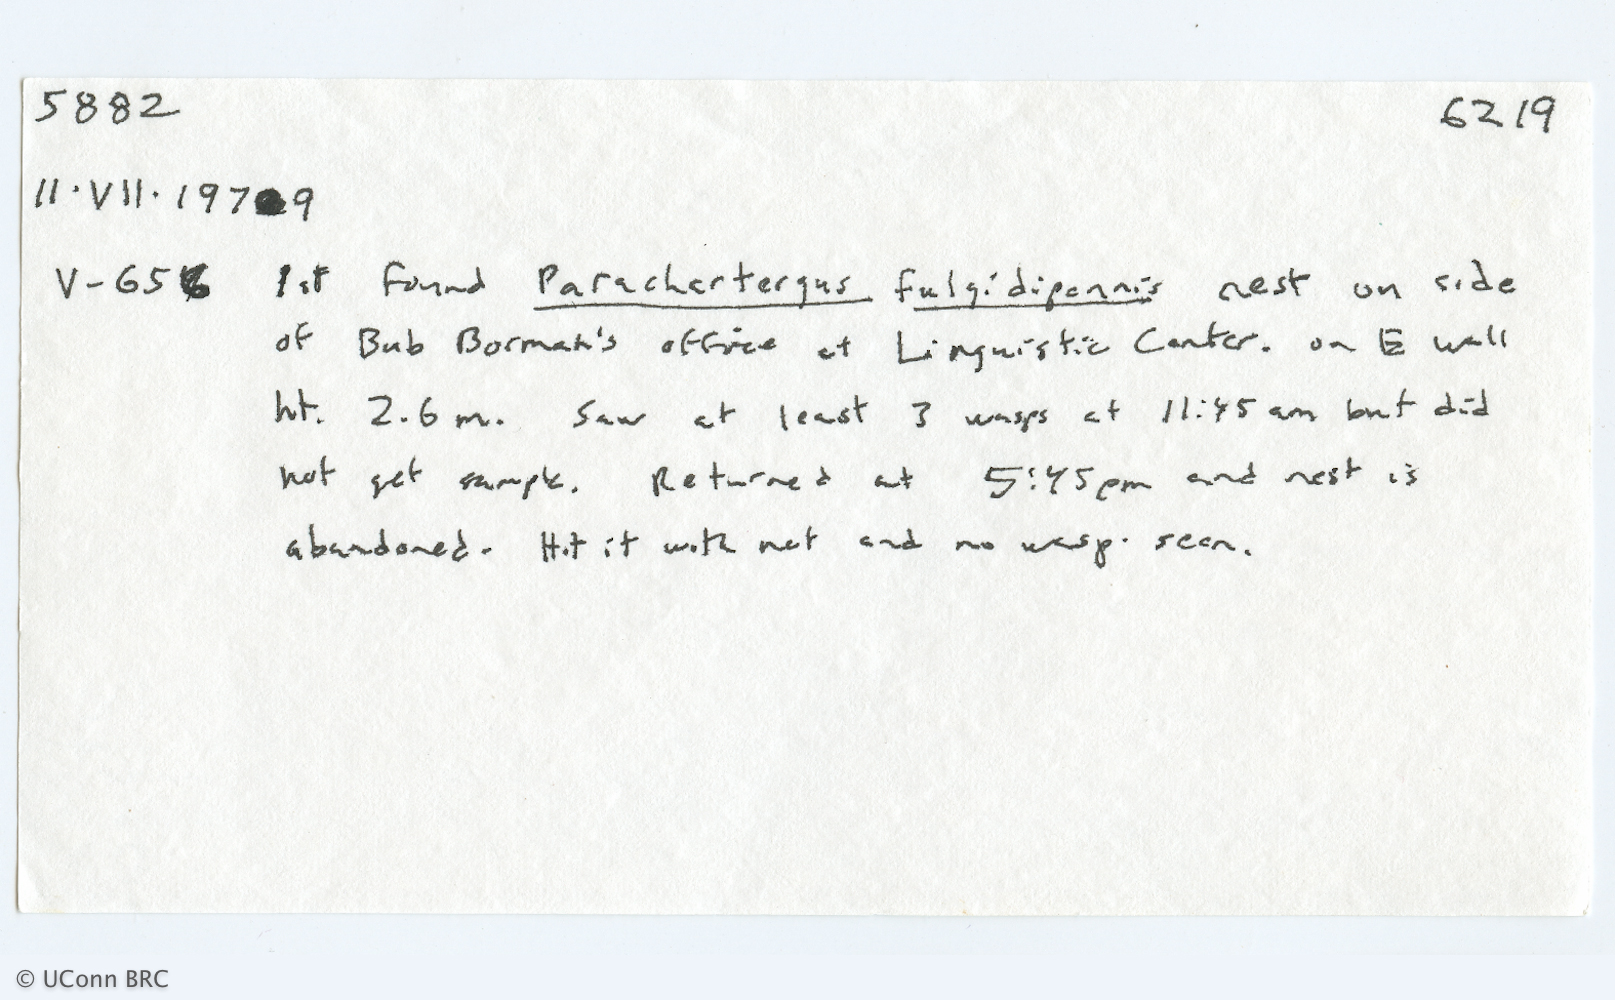 5882 6219
11·VII·1979
V-656 1st found Parachartergus fulgidipennis nest on side
of Bub Borman's office at Linguistic Center. on E wall
ht. 2.6 m. Saw at least 3 wasps at 11:45 am but did
not get sample. Returned at 5:45 pm and nest is
abandoned. Hit it with net and no wasp. seen.
© UConn BRC